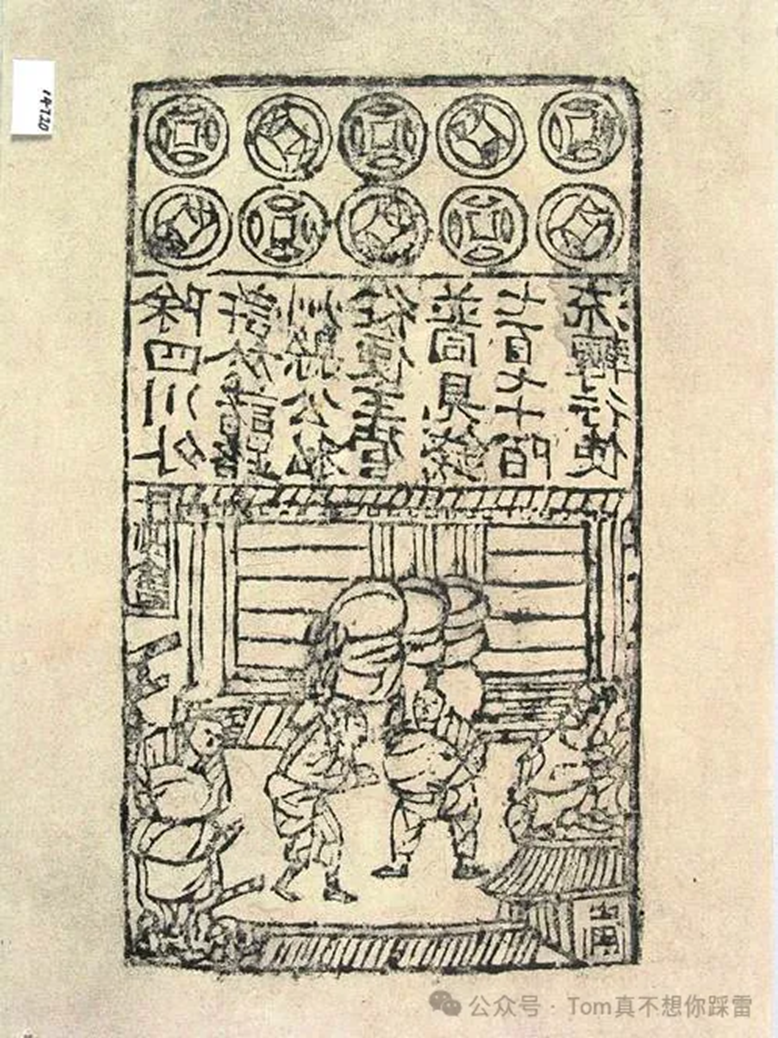 除四川外
許於諸路
州縣公私
從便主管
並同見錢
七百七十陌
流轉行使
公众号 · Tom真不想你踩雷